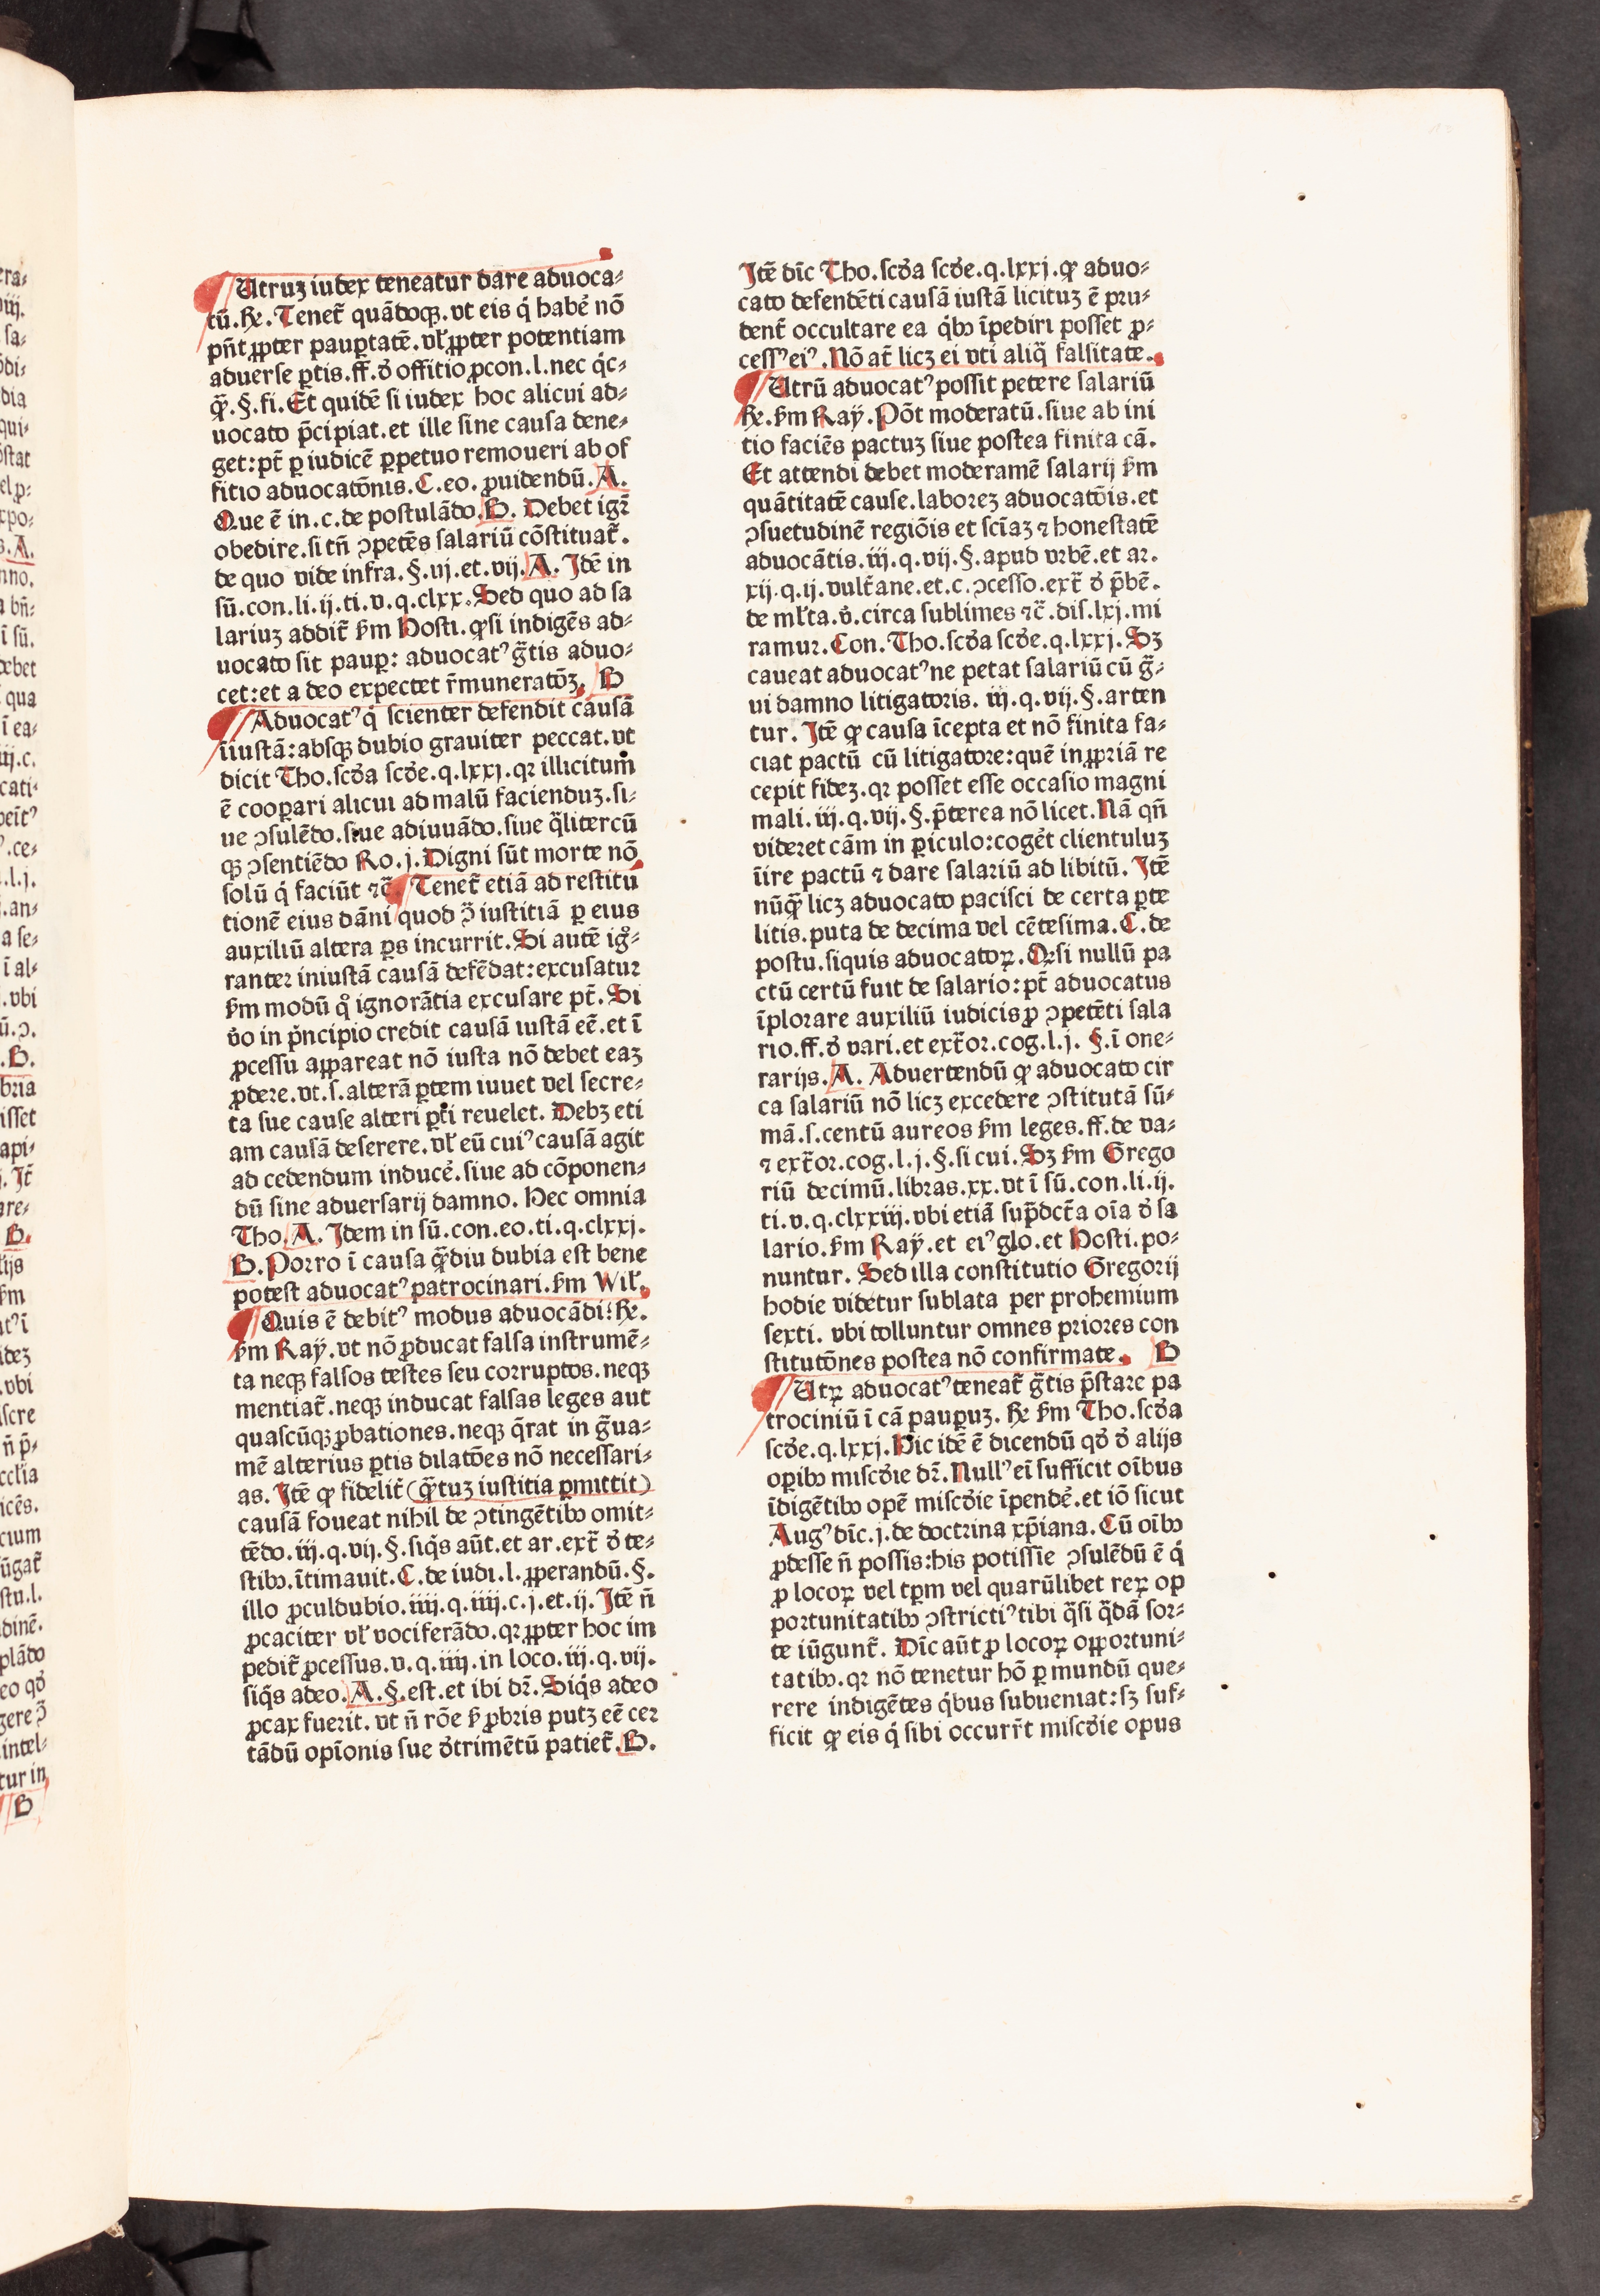 Utruz iudex teneatur dare aduoca⸗
tū. Rx. Tenet̄ quādoqꝫ. vt eis q̇ habe᷒ nō
pn̄t ꝓpter paupertatē. vel ꝓpter potentiam
aduerse ꝑtis. ff. ꝺ offitio ꝓcon. l. nec q̇c⸗
ꝙ̄. §. fi. Et quidē si iudex hoc alicui ad⸗
uocato p̄cipiat. et ille sine causa dene⸗
get: pt̄ ꝑ iudicē ꝑpetuo remoueri ab of
fitio aduocatōnis. C. eo. ꝓuidendū. A.
Que ē in. c. de postulādo. B. Debet igr̄
obedire. si tn̄ ↄpetēs salariū cōstituat̄.
de quo vide infra. §. vj. et. vij. A. Idē in
sū. con. li. ij. ti. v. q. clxx. Sed quo ad sa
lariuz addit̄ ẜm Hosti. ꝙ si indigēs ad⸗
uocato sit pauꝑ: aduocatꝰ gr̄tis aduo⸗
cet: et a deo expectet r̄muneratōꝫ. B
Aduocatꝰ q̇ scienter defendit causā
īiustā: absqꝫ dubio grauiter peccat. vt
dicit Tho. scꝺa scꝺe. q. lxxj. qꝛ illicitum̄
ē cooꝑari alicui ad malū facienduꝫ. si⸗
ue ↄsulēdo. siue adiuuādo. siue q̄litercū
qꝫ ↄsentiēdo Ro. j. Digni sūt morte nō
solū q̇ faciūt ⁊c̄ Tenet̄ etiā ad restitu
tionē eius dāni quod ꝯ̄ iustitiā ꝑ eius
auxiliū altera ꝑs incurrit. Si autē igͦ⸗
ranter iniustā causā defēdat: excusatur
ẜm modū qͦ ignorātia excusare pt̄. Si
v̊o in pͥncipio credit causā iustā eē. et ī
ꝓcessu appareat nō iusta nō debet eaꝫ
ꝓdere. vt. s. alterā ꝑtem iuuet vel secre⸗
ta sue cause alteri ꝑti reuelet. Debꝫ eti
am causā deserere. vel eū cuiꝰ causā agit
ad cedendum induce᷒. siue ad cōponen⸗
dū sine aduersarij damno. Hec omnia
Tho. A. Idem in sū. con. eo. ti. q. clxxj.
B. Porro ī causa ꝙ̄diu dubia est bene
potest aduocatꝰ patrocinari. ẜm Wil̄.
Quis ē debitꝰ modus aduocādi? Rx.
ẜm Raẏ. vt nō ꝓducat falsa instrumē⸗
ta neqꝫ falsos testes seu corruptos. neqꝫ
mentiat̄. neqꝫ inducat falsas leges aut
quascūqꝫ ꝓbationes. neqꝫ q̄rat in gr̄ua⸗
mē alterius ꝑtis dilatōes nō necessari⸗
as. Itē ꝙ fidelit̄ (ꝙ̄tuꝫ iustitia ꝑmittit)
causā foueat nihil de ↄtingētibꝰ omit⸗
tēdo. iij. q. vij. §. siq̇s aūt. et ar. ext̄ ꝺ te⸗
stibꝰ. ītimauit. C. de iudi. l. ꝓperandū. §.
illo ꝓculdubio. iiij. q. iiij. c. j. et. ij. Itē n̄
ꝓcaciter vel vociferādo. qꝛ ꝓpter hoc im
pedit̄ ꝓcessus. v. q. iiij. in loco. iij. q. vij.
siq̇s adeo. A. §. est. et ibi dr̄. Siq̇s adeo
ꝓcax fuerit. vt n̄ rōe ẜ ꝓbris putꝫ eē cer
tādū opīonis sue ꝺtrimētū patiet̄. B.
Itē dīc Tho. scꝺa scꝺe. q. lxxj. ꝙ aduo⸗
cato defendēti causā iustā licituꝫ ē pru⸗
dent̄ occultare ea q̇bꝰ īpediri posset ꝓ⸗
cessꝰ eiꝰ. Nō at̄ licꝫ ei vti aliq̄ falsitate.
Utrū aduocatꝰ possit petere salariū
Rx. ẜm Raẏ. Pōt moderatū. siue ab ini
tio faciēs pactuꝫ siue postea finita cā.
Et attendi debet moderamē salarij ẜm
quātitatē cause. laboreꝫ aduocatōis. et
ↄsuetudinē regiōis et scīaꝫ ⁊ honestatē
aduocātis. iij. q. vij. §. apud vrbē. et ar.
xij. q. ij. vult̄ane. et. c. ↄcesso. ext̄ ꝺ p̄bē.
de ml̄ta. v̊. circa sublimes ⁊c̄. dis. lxj. mi
ramur. Con. Tho. scꝺa scꝺe. q. lxxj. Sꝫ
caueat aduocatꝰ ne petat salariū cū gr̄⸗
ui damno litigatoris. iij. q. vij. §. arcen
tur. Itē ꝙ causa īcepta et nō finita fa⸗
ciat pactū cū litigatore: quē in ꝓpriā re
cepit fideꝫ. qꝛ posset esse occasio magni
mali. iij. q. vij. §. p̄terea nō licet. Nā qn̄
videret cām in ꝑiculo: coge᷒t clientuluꝫ
īire pactū ⁊ dare salariū ad libitū. Itē
nūꝙ̄ licꝫ aduocato pacisci de certa ꝑte
litis. puta de decima vel cētesima. C. de
postu. siquis aduocatoꝝ. Qꝛ si nullū pa
ctū certū fuit de salario: pt̄ aduocatus
īplorare auxiliū iudicis ꝓ ↄpetēti sala
rio. ff. ꝺ vari. et ext̄or. cog. l. j. §. ī one⸗
rarijs. A. Aduertendū ꝙ aduocato cir
ca salariū nō licꝫ excedere ↄstitutā sū⸗
mā. s. centū aureos ẜm leges. ff. de va⸗
⁊ ext̄or. cog. l. j. §. si cui. Sꝫ ẜm Grego
riū decimū. libras. xx. vt ī sū. con. li. ij.
ti. v. q. clxxiij. vbi etiā sup̄dct̄a oīa ꝺ sa
lario. ẜm Raẏ. et eiꝰ glo. et Hosti. po⸗
nuntur. Sed illa constitutio Gregorij
hodie videtur sublata per prohemium
sexti. vbi tolluntur omnes priores con
stitutōnes postea nō confirmate. B
Utꝝ aduocatꝰ teneat̄ gr̄tis p̄stare pa
trociniū ī cā pauꝑuꝫ. Rx ẜm Tho. scꝺa
scꝺe. q. lxxj. Hic idē ē dicendū qꝺ ꝺ alijs
oꝑibꝰ miscꝺie dr̄. Nullꝰ eī sufficit oībus
īdigētibꝰ opē miscꝺie īpende᷒. et iō sicut
Augꝰ dīc. j. de doctrina xp̄iana. Cū oībꝰ
ꝓdesse n̄ possis: his potissīe ↄsulēdū ē q̇
ꝓ locoꝝ vel tꝑm vel quarūlibet reꝝ op
portunitatibꝰ ↄstrictiꝰ tibi q̄si q̄dā sor⸗
te iūgunt̄. Dīc aūt ꝓ locoꝝ opportuni⸗
tatibꝰ. qꝛ nō tenetur hō ꝑ mundū que⸗
rere indigētes q̇bus subueniat: sꝫ suf⸗
ficit ꝙ eis q̇ sibi occurrūt miscꝺie opus